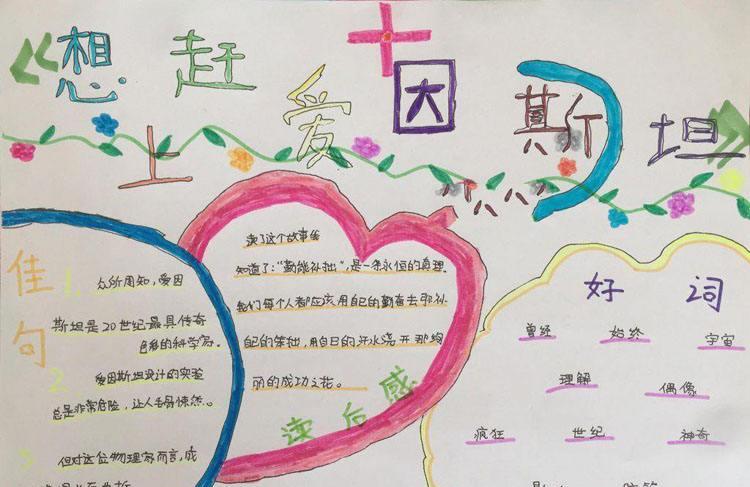 《想赶上爱因斯坦》
佳句
1. 众所周知,爱因
斯坦是20世纪最具传奇
色彩的科学家。
2 爱因斯坦设计的实验
总是非常危险,让人毛骨悚然。
3 但对这位物理家而言,成
读了这个故事我
知道了:“勤能补拙”,是一条永恒的真理。
我们每个人都应该用自己的勤奋去弥补
自己的笨拙,用自己的汗水浇开那绚
丽的成功之花。
读后感
好词
曾经 始终 宇宙
理解 偶像
疯狂 世纪 神奇